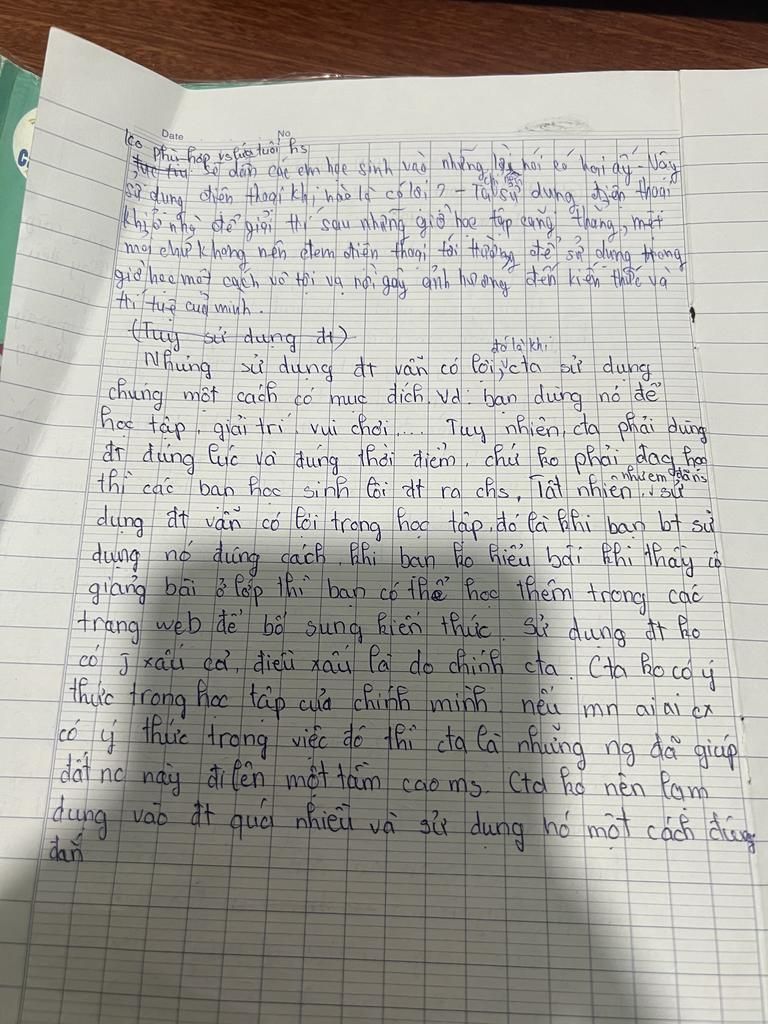 Date No
ko phù hợp vs lứa tuổi hs
sẽ dẫn các em học sinh vào những lời nói có hại ấy - Vậy
sử dụng điện thoại khi nào là có lợi? - Ta chỉ nên sử dụng điện thoại
khi ở nhà để giải trí sau những giờ học tập căng thẳng, mệt
mỏi chứ không nên đem điện thoại tới trường để sử dụng trong
giờ học một cách vô tội vạ nội gây ảnh hưởng đến kiến thức và
trí tuệ của mình.
(Tuy sử dụng đt)
Nhưng sử dụng đt vẫn có lợi, đó là khi cta sử dụng
chúng một cách có mục đích. Vd: bạn dùng nó để
học tập, giải trí, vui chơi.... Tuy nhiên, cta phải dùng
đt đúng lúc và đúng thời điểm, chứ ko phải đag học
thì các bạn học sinh lôi đt ra chs, Tất nhiên, sử
dụng đt vẫn có lợi trong học tập, đó là khi bạn bt sử
dụng nó đúng cách, khi bạn ko hiểu bài khi thầy cô
giảng bài ở lớp thì bạn có thể học thêm trong các
trang web để bổ sung kiến thức. Sử dụng đt ko
có j xấu cả, điều xấu là do chính cta. Cta ko có ý
thức trong học tập của chính mình, nếu mn ai ai cx
có ý thức trong việc đó thì cta là những ng đã giúp
đất nc này đi lên một tầm cao ms. Cta ko nên lạm
dụng vào đt quá nhiều và sử dụng nó một cách đúng
đắn